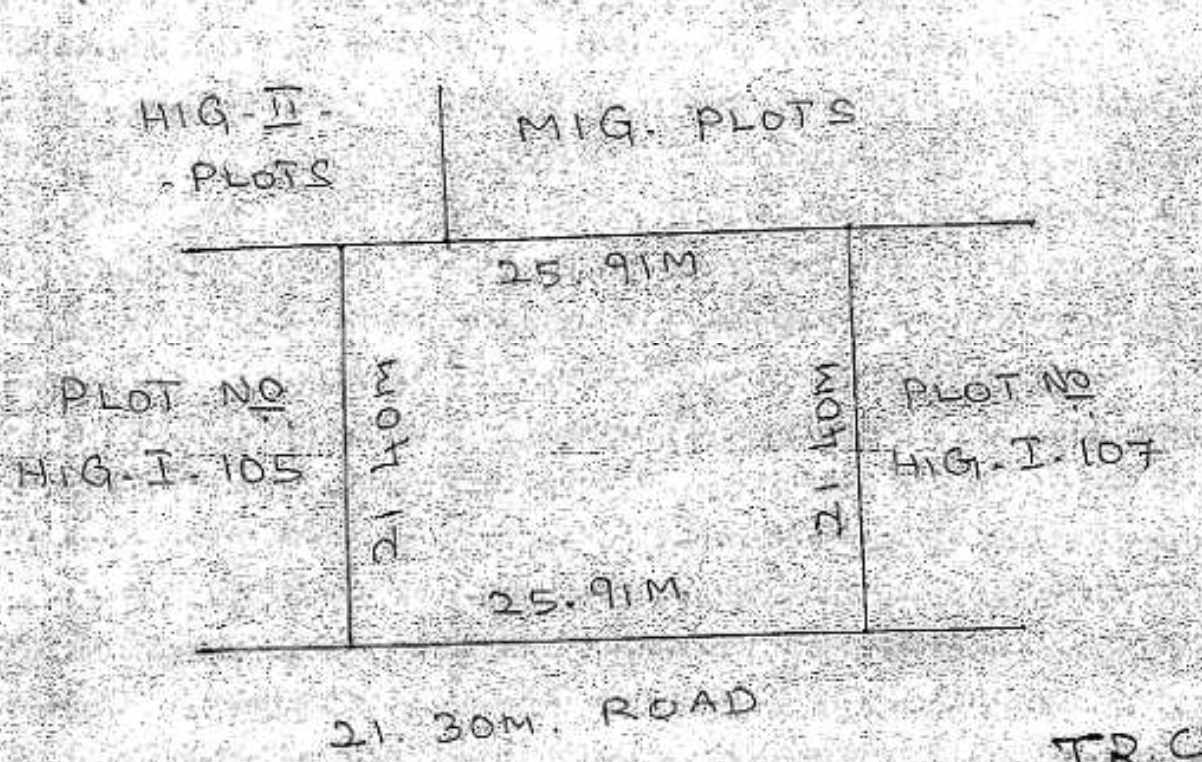 HIG-II-
PLOTS
MIG. PLOTS
25.91M
PLOT NO
HIG.I.105
21.40M
21.40M
PLOT NO
HIG.I.107
25.91M
21.30M. ROAD
TR.C